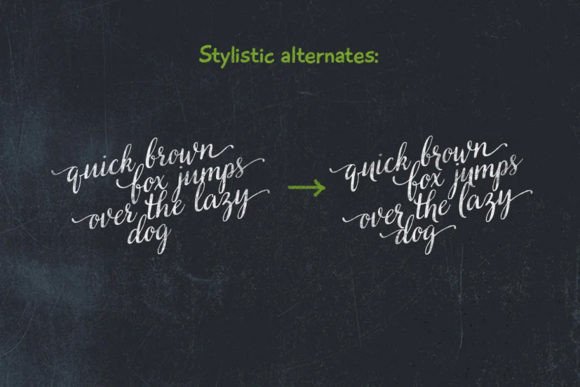 Stylistic alternates:
quick brown
fox jumps
over the lazy
dog
quick brown
fox jumps
over the lazy
dog